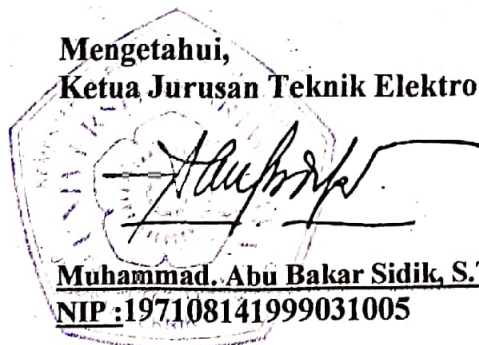 Mengetahui,
Ketua Jurusan Teknik Elektro
Muhammad. Abu Bakar Sidik, S.T
NIP :197108141999031005